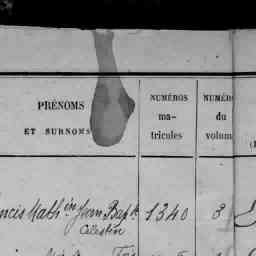 PRÉNOMS
ET SURNOMS
NUMÉROS
ma-
tricules
NUMÉR
du
volum
ncis Math.in Jean Bap.te 1340 3
Célestin